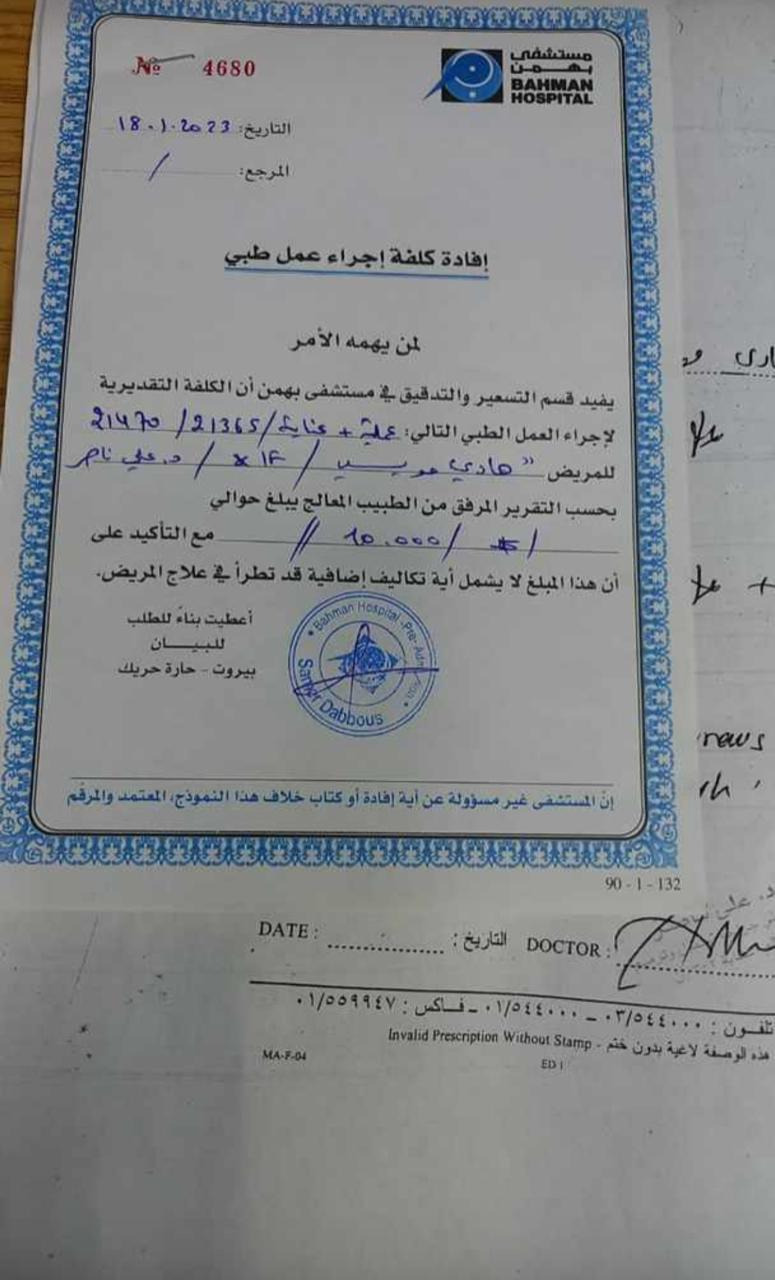 № 4680
مستشفى
بهمن
BAHMAN
HOSPITAL
التاريخ: 18.1.2023
المرجع: /
إفادة كلفة إجراء عمل طبي
لمن يهمه الأمر
يفيد قسم التسعير والتدقيق في مستشفى بهمن أن الكلفة التقديرية
لإجراء العمل الطبي التالي: عملية + عناية / 21365 / 21470
للمريض " هادي / د. علي ناصر
بحسب التقرير المرفق من الطبيب المعالج يبلغ حوالي
/ $ / 10.000 // مع التأكيد على
أن هذا المبلغ لا يشمل أية تكاليف إضافية قد تطرأ في علاج المريض.
أعطيت بناءً للطلب
للبيـــــان
بيروت - حارة حريك
Bahman Hospital
Samer Dabbous
إنّ المستشفى غير مسؤولة عن أية إفادة أو كتاب خلاف هذا النموذج، المعتمد والمرقّم
90 - 1 - 132
DATE : التاريخ : DOCTOR :
تلفون : ٠٣/٥٤٤٠٠٠ – ٠١/٥٤٤٠٠٠ – فاكس : ٠١/٥٥٩٩٤٧
هذه الوصفة لاغية بدون ختم - Invalid Prescription Without Stamp
MA-F-04
ED 1